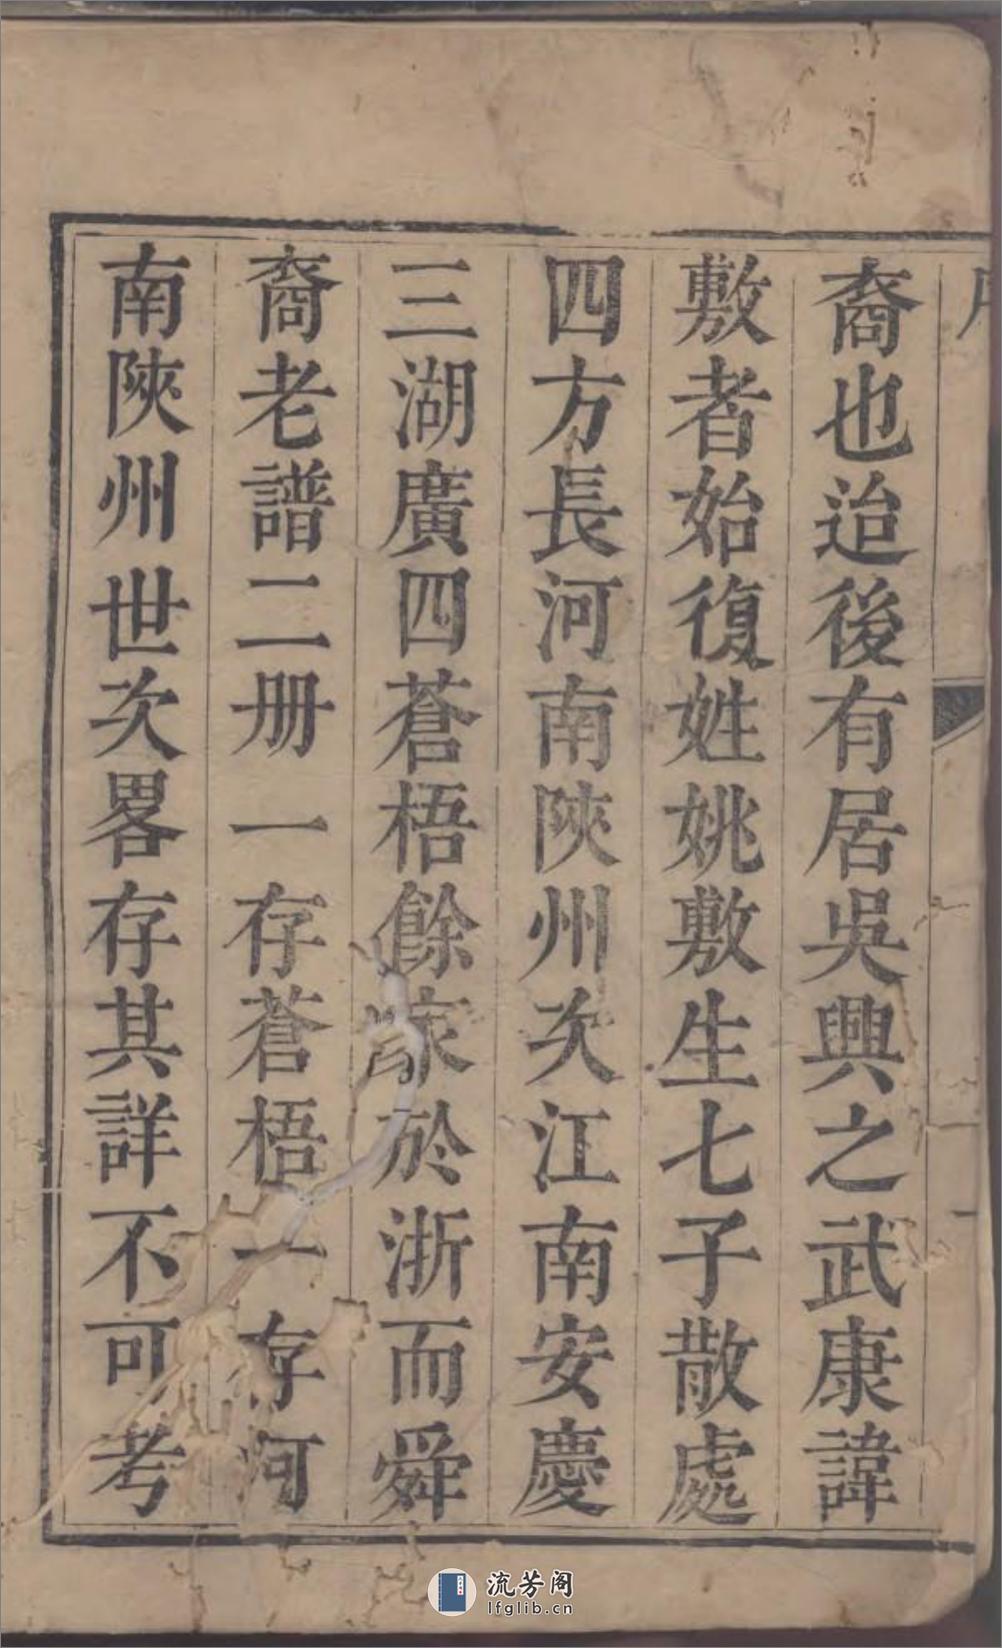 裔也迨後有居吳興之武康諱
敷者始復姓姚敷生七子散處
四方長河南陝州次江南安慶
三湖廣四蒼梧餘家於浙而舜
裔老譜二册一存蒼梧一存河
南陝州世次畧存其詳不可考
流芳阁
lfglib.cn